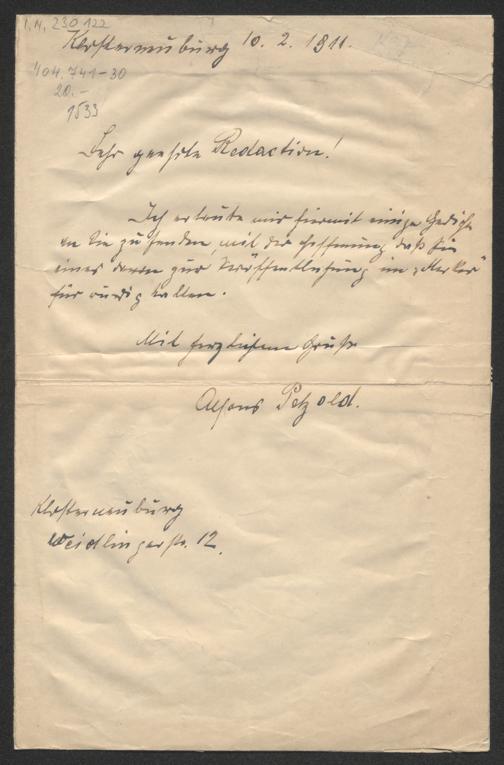 I.N. 230.122
Klosterneuburg 10. 2. 1911.
404.741-30
20.-
1533
Sehr geehrte Redaction!
Ich erlaube mir hiermit einige Gedichte
an Sie zu senden, mit der Hoffnung, daß Sie
eines davon zur Veröffentlichung im „Merker"
für würdig halten.
Mit herzlichem Gruße
Alfons Petzold.
Klosterneuburg
Weidlingerstr. 12.